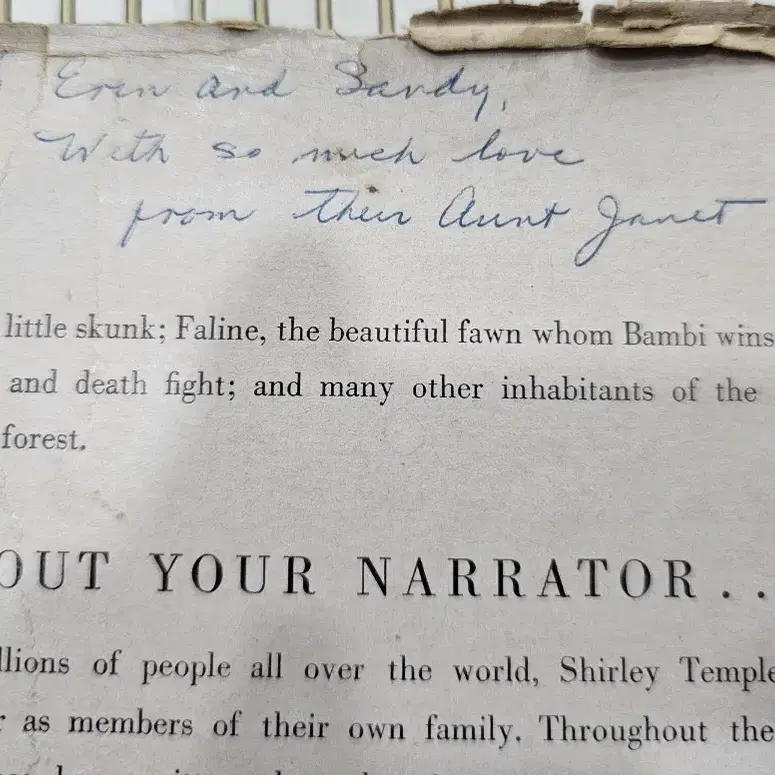 Eren and Sandy,
With so much love
from their Aunt Janet
little skunk; Faline, the beautiful fawn whom Bambi wins
and death fight; and many other inhabitants of the
forest.
OUT YOUR NARRATOR . .
llions of people all over the world, Shirley Temple
r as members of their own family. Throughout the